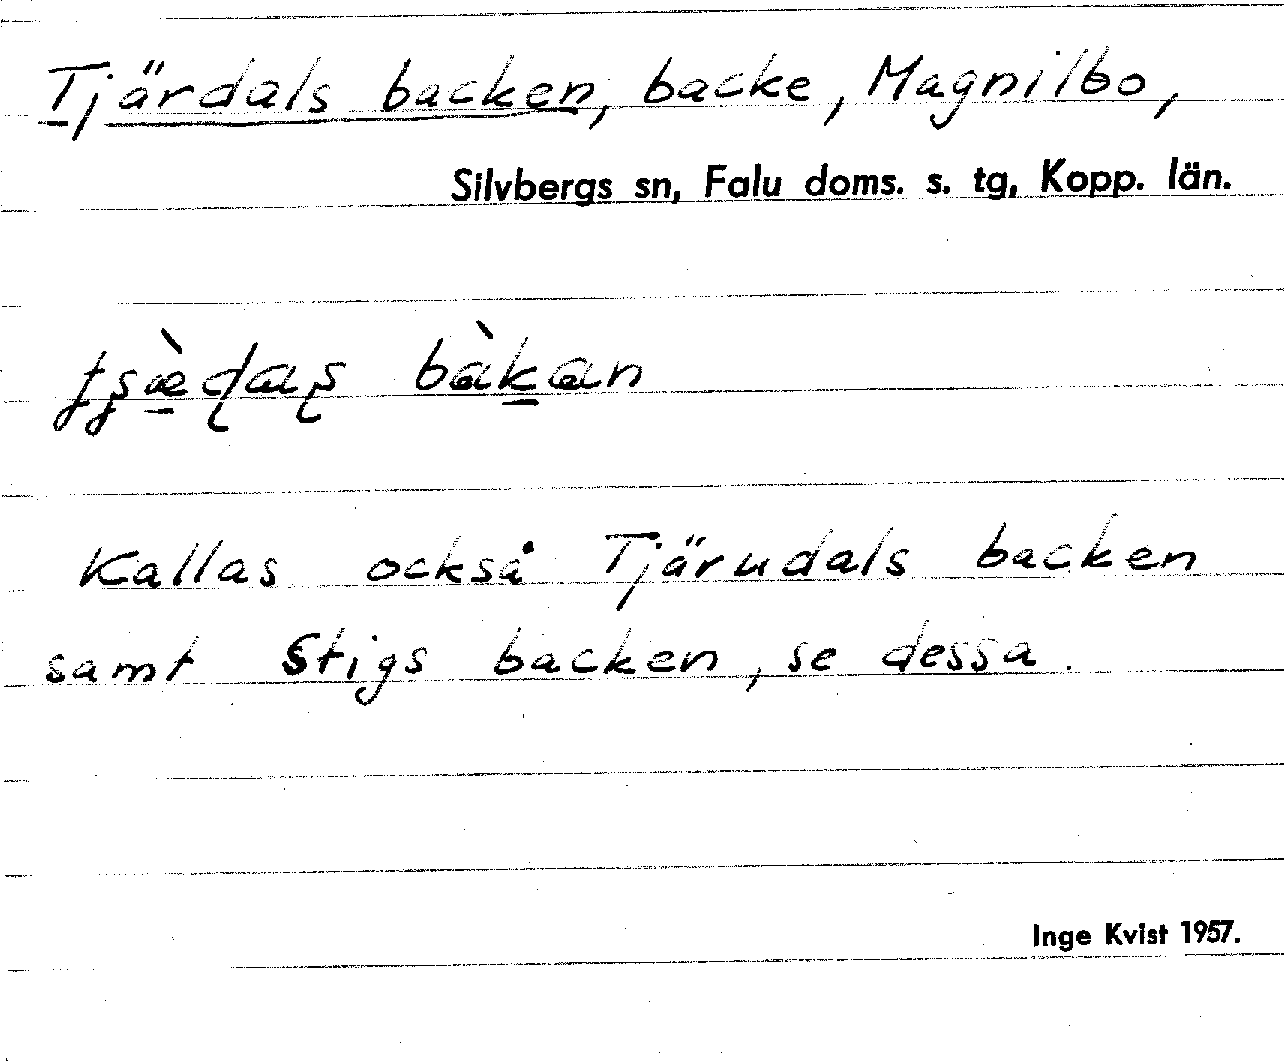 Tjärdals backen, backe, Magnilbo,
Silvbergs sn, Falu doms. s. tg, Kopp. län.
bàkan
Kallas också Tjärudals backen
samt Stigs backen, se dessa.
Inge Kvist 1957.